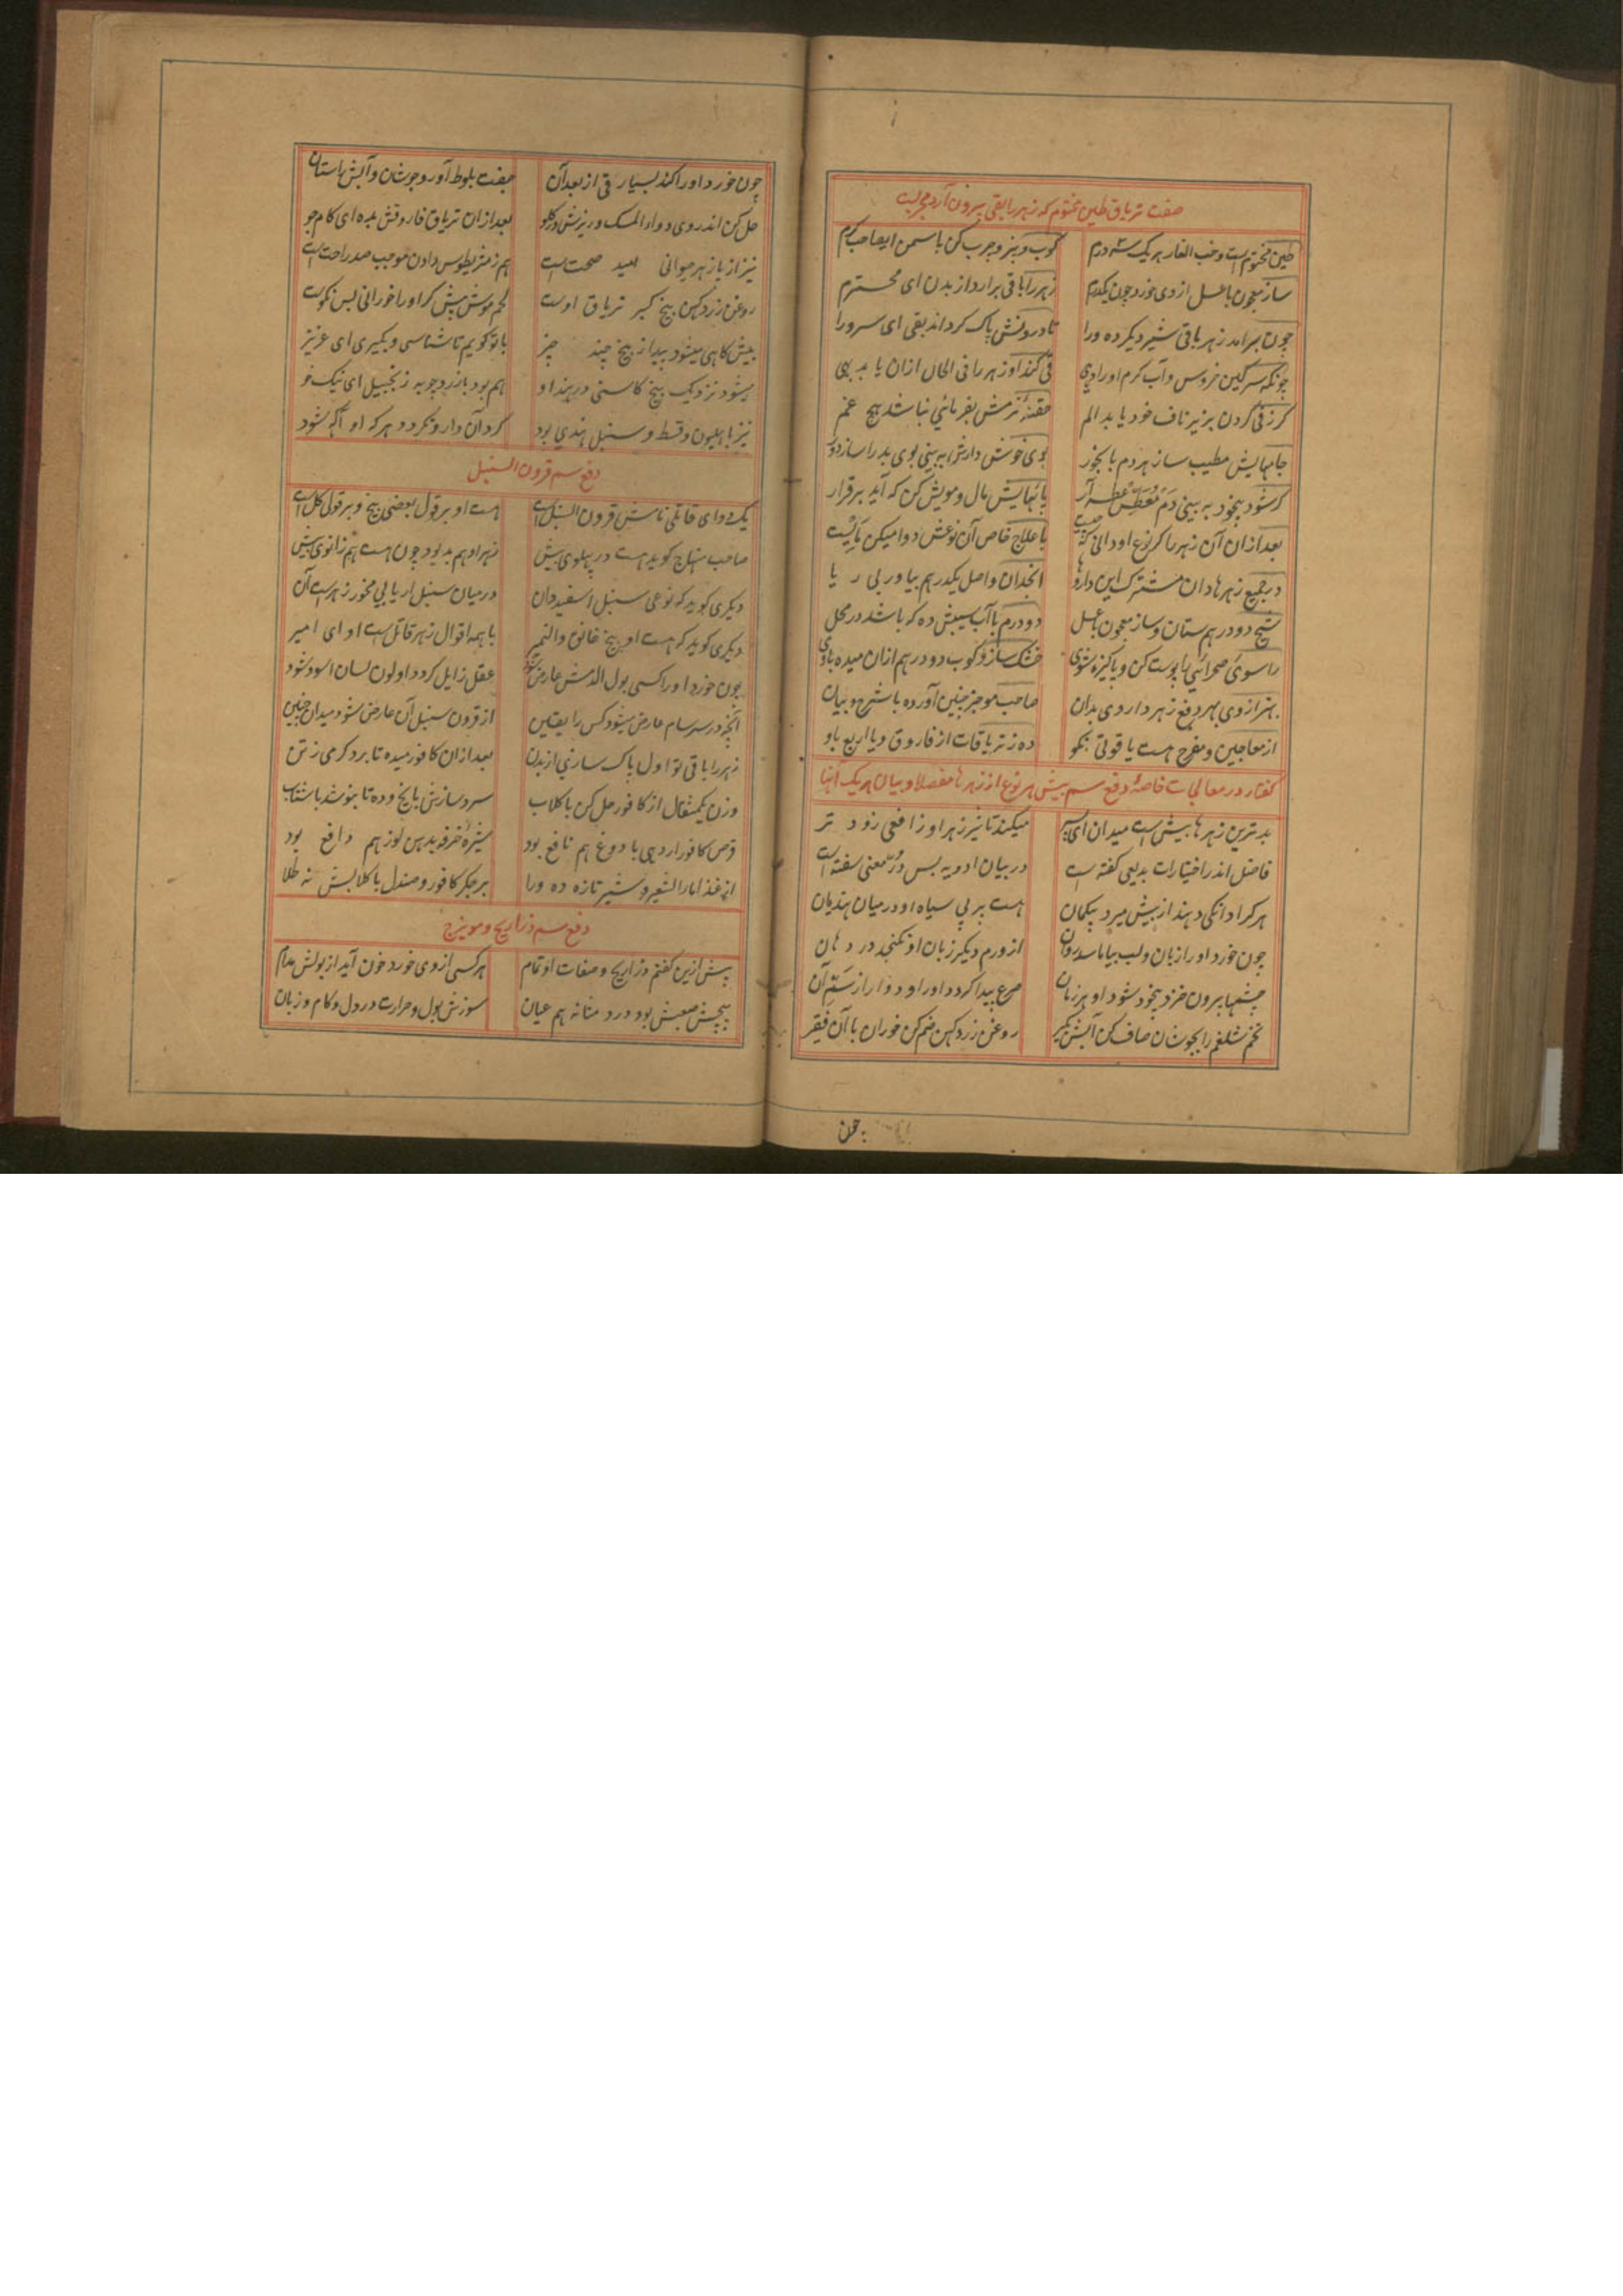 صفت تریاق طین مختوم که زهر را بقی بیرون آرد مجربست
طین مختوم است و حب الغار هر یک سه درم کوب و بیز و چرب کن با سمن ای صاحب کرم
ساز معجون با عسل از وی خورد چون یکدرم زهر را با قی برارد از بدن ای محترم
چون برامد زهر با قی شیر دیگر ده ورا تا درونش پاک گرداند بقی ای سرورا
چونکه سرکین خروس و آب کرم او را دهی قی کند او زهر را فی الحال ازان یابد بهی
کر ز قی کردن بزیر ناف خود یابد الم حقنهٔ نرمش بفرمائی نباشد هیچ غم
جامهایش مطیب ساز هر دم با بخور بوی خوش دارش به بینی بوی بد را ساز دور
کر شود بیخود به بینی دم معطس عطسه آر پایهایش مال و مویش کن که آید برقرار
بعد ازان آن زهر را کر نوع او دانی که چیست با علاج خاص آن نوعش دوا میکن بایست
در جمیع زهرها دان مشترک این داروها انجدان و اصل یکدرهم بیاور بی ریا
شیح دو درهم ستان و ساز معجون با عسل دو درم با آب سیبش ده که باشد در محل
راسوی صحرائی با پوست کن و پاکیزه شوی خشک ساز و کوب دو درهم ازان میده باوی
بهتر از وی بهر دفع زهر داروی بدان صاحب موجز چنین آورده با شرح و بیان
از معاجین و مفرح هست یاقوتی نکو ده ز تریاقات از فاروق و یا اربع باو
کفتار در معالجات خاصهٔ دفع سم بیش هر نوع از زهرها مفصلا و بیان هر یک آنها
بدترین زهرها بیش است میدان ای پسر میکند تاثیر زهر او ز افعی زود تر
فاضل اندر اختیارات بدیعی کفته است در بیان ادویه بس درّ معنی سفته است
هر کرا دانکی دهند از بیش میرد بیکمان هست بر بی سیاه او در میان هندیان
چون خورد او را زبان و لب بیاماسد روان از ورم دیکر زبان او نکنجد در دهان
چشمها بیرون خزد بیخود شود او هر زمان صرع پیدا کردد او را و دوار از سم آن
تخم شلغم را بجوشان صاف کن آبش بگیر روغن زرد کهن ضم کن خوران با آن فقیر
چون
چون خورد او را کند بسیار قی از بعد آن جفت بلوط آور و جوشان و آبش را ستان
حل کن اندر وی دواء المسک و ریزش در کلو بعد ازان تریاق فاروقش بده ای کام جو
نیز از پازهر حیوانی امید صحت است هم ز مثریطوس دادن موجب صد راحت است
روغن زرد کهن بیخ کبر تریاق اوست لحم موش بیش کر او را خورانی بس نکوست
بیش کاهی میشود پیدا ز بیخ چند چیز با تو کویم تا شناسی و بکیری ای عزیز
میشود نزدیک بیخ کاسنی در هند او هم بود با زردچوبه زنجبیل ای نیک خو
نیز با هلیون و قسط و سنبل هندی بود کرد آن دارو نکردد هر که او آکه شود
دفع سم قرون السنبل
یک دوای قاتلی نامش قرون السنبل است هست او بر قول بعضی بیخ و بر قولی کل است
صاحب منهاج کوید هست در پهلوی بیش زهر او هم بد بود چون هست هم زانوی بیش
دیکری کوید که نوعی سنبل اسفید دان در میان سنبل ار یابی مخور زهر است آن
دیکری کوید که هست او بیخ خانق والنمیر با همه اقوال زهر قاتل است او ای امیر
چون خورد او را کسی بول الدمش عارض شود عقل زایل کردد او لون لسان اسود شود
آنچه در سرسام عارض میشود کس را یقین از قرون سنبل آن عارض شود میدان چنین
زهر را با قی تو اول پاک سازی از بدن بعد ازان کافور میده تا برد کرمی ز تن
وزن یکمثقال از کافور حل کن با کلاب سرد سازش با یخ و ده تا بنوشد با شتاب
قرص کافور ار دهی با دوغ هم نافع بود شیرهٔ خرفه پدهن لوز هم دافع بود
از غذا ماء الشعیر و شیر تازه ده ورا بر جکر کافور و صندل با کلابش نه طلا
دفع سم ذراریح و مویزج
پیش ازین کفتم ذراریح و صفات او تمام هر کسی از وی خورد خون آید از بولش مدام
پیچش صعبش بود درد مثانه هم عیان سوزش بول و حرارت در دل و کام و زبان